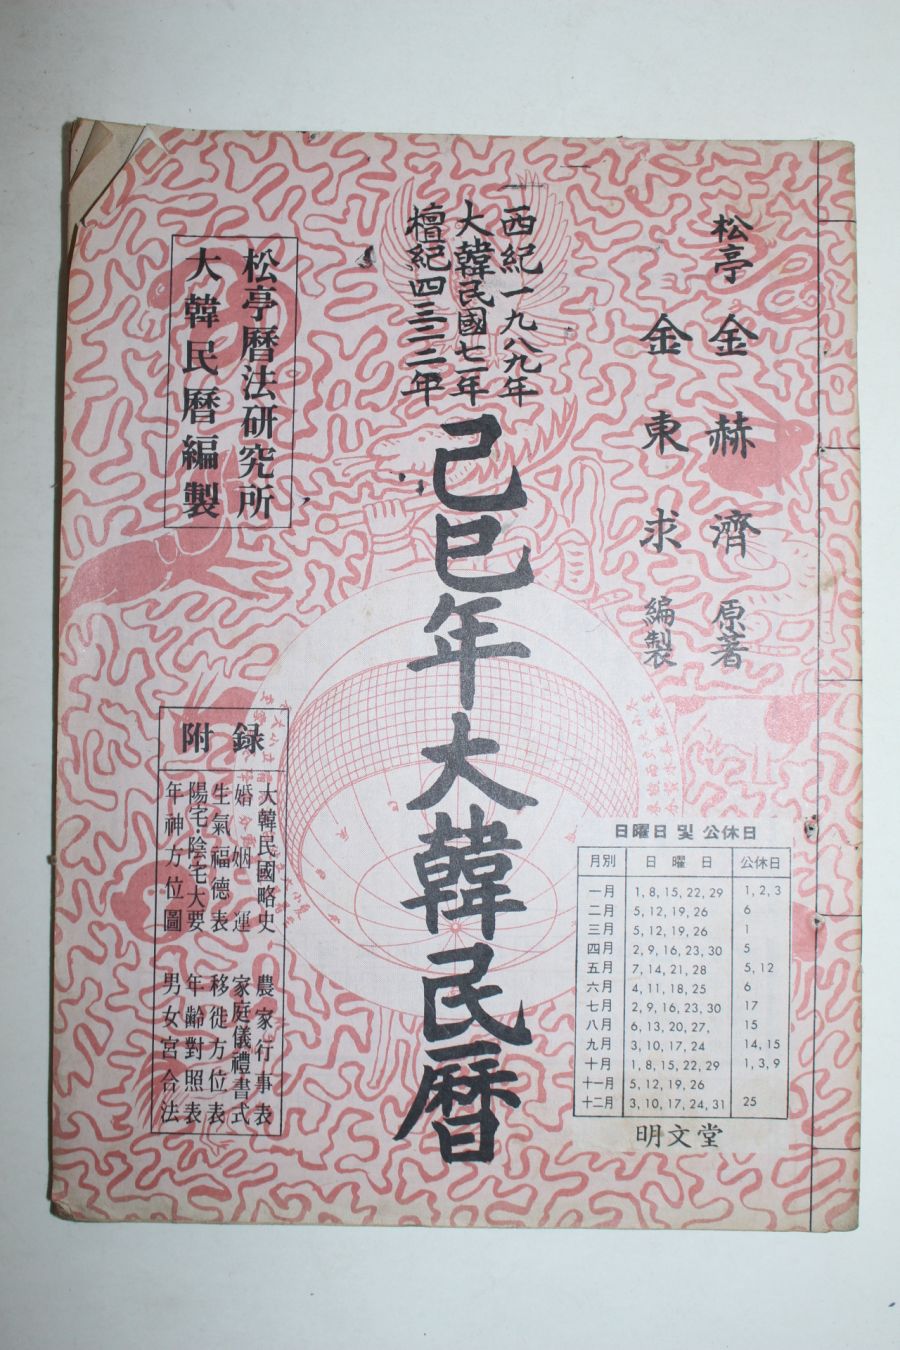 松亭 金赫濟 原著
金東求 編製
西紀一九八九年
大韓民國七一年
檀紀四三二二年
己巳年大韓民曆
松亭曆法研究所
大韓民曆編製
附錄
大韓民國略史 農家行事表
婚姻運 家庭儀禮書式
生氣福德表 移徙方位表
陽宅·陰宅大要 年齡對照表
年神方位圖 男女宮合法
日曜日 및 公休日
月別 日曜日 公休日
一月 1, 8, 15, 22, 29 1, 2, 3
二月 5, 12, 19, 26 6
三月 5, 12, 19, 26 1
四月 2, 9, 16, 23, 30 5
五月 7, 14, 21, 28 5, 12
六月 4, 11, 18, 25 6
七月 2, 9, 16, 23, 30 17
八月 6, 13, 20, 27, 15
九月 3, 10, 17, 24 14, 15
十月 1, 8, 15, 22, 29 1, 3, 9
十一月 5, 12, 19, 26
十二月 3, 10, 17, 24, 31 25
明文堂